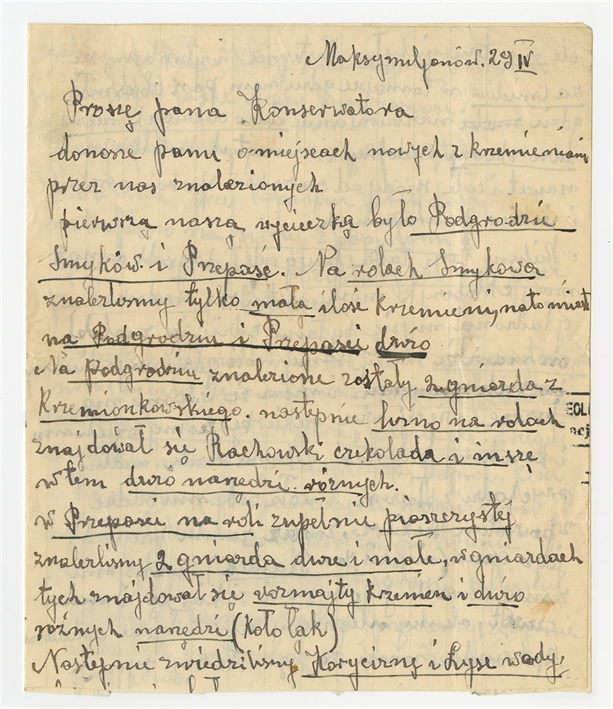 Maksymiljanów. 29 IV
Proszę pana Konserwatora
donoszę panu o miejscach nowych z krzemieniami
przez nas znalezionych.
pierwszą naszą wycieczką było Podgrodzie
Smyków i Przepaść. Na rolach Smykowa
znaleźliśmy tylko małą ilość krzemieni, natomiast
na Podgrodziu i Przepaści dużo
Na podgrodziu znalezione zostały 2 gniazda z
Krzemionkowskiego. następnie luźno na rolach
znajdował się Rachowski czekolada i insze
w tem dużo narzędzi różnych.
w Przepaści na roli zupełnie piaszczystej
znaleźliśmy 2 gniazda duże i małe, w gniazdach
tych znajdował się rozmajty krzemień i dużo
różnych narzędzi (Koło łąk)
Następnie zwiedziliśmy Koryciznę i Łyse wody,